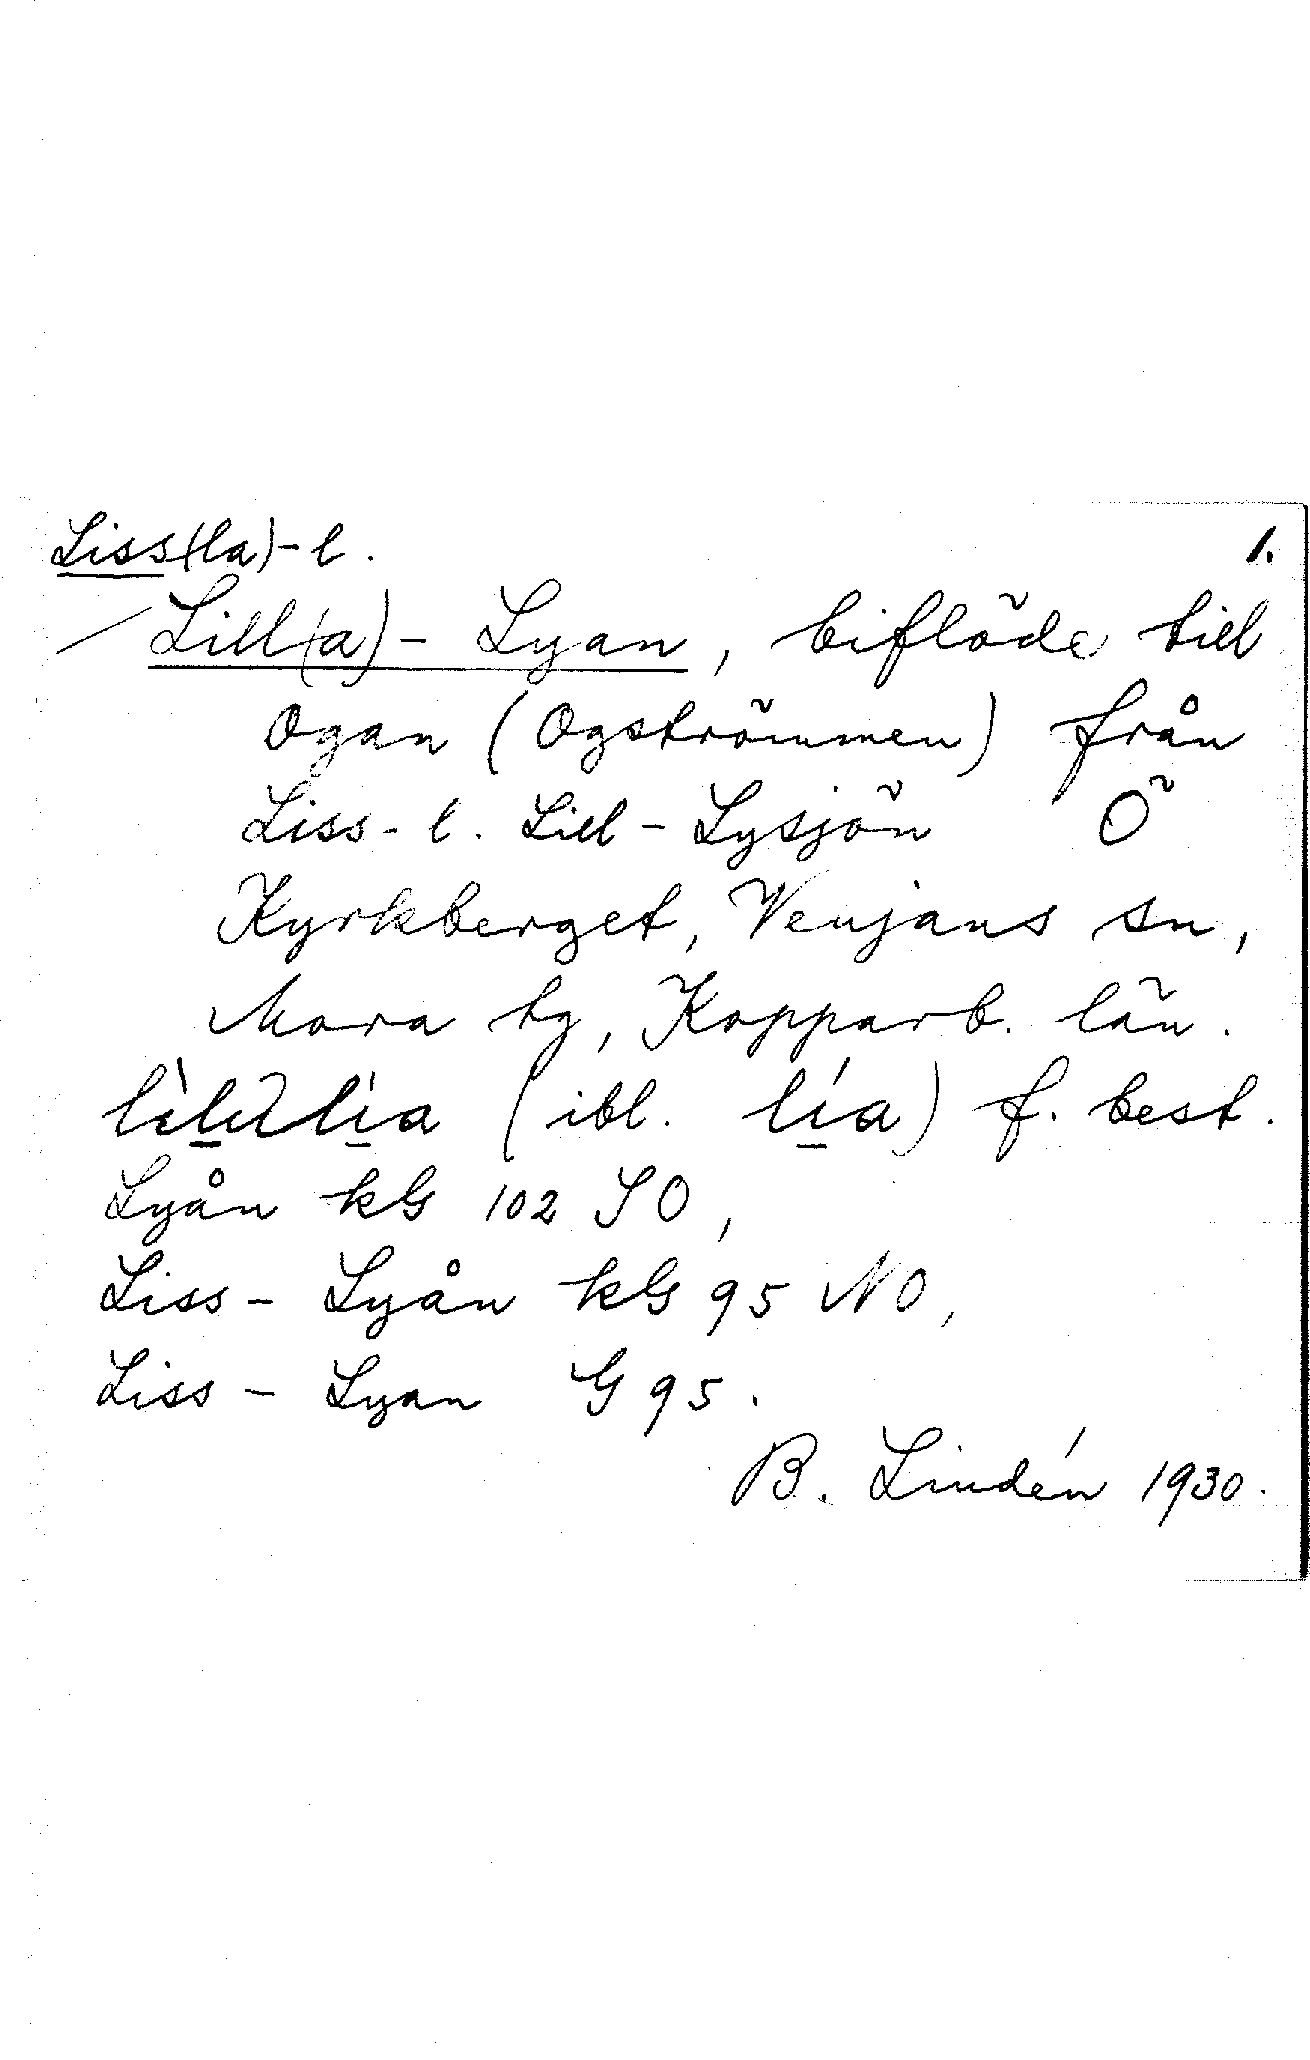 Liss(la)-l. 1.
Lill(a)- Lyan, biflöde till
Ogan (Ogströmmen) från
Liss- l. Lill- Lysjön Ö
Kyrkberget, Venjans sn,
Mora tg, Kopparb. län.
(ibl. lía) f. best.
Lyån kG 102 SO,
Liss- Lyån kG 95 NO,
Liss- Lyan G 95.
B. Lindén 1930.